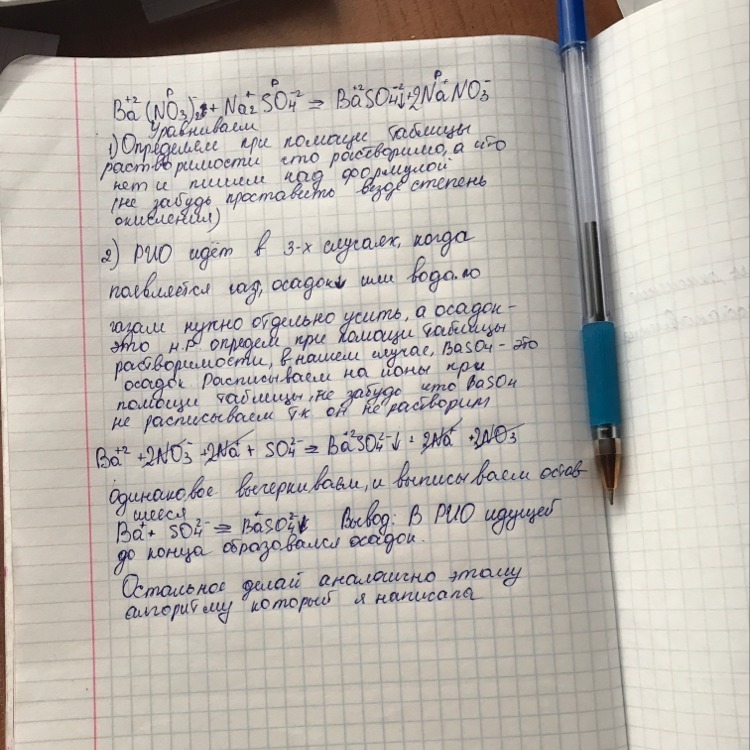 Ba⁺²(NO₃)⁻₂ + Na₂⁺SO₄⁻² = Ba⁺²SO₄⁻²↓+2Na⁺NO₃⁻
Р Р Р
Уравниваем
1) Определяем при помощи таблицы
растворимости что растворимо, а что
нет и пишем над формулой
(не забудь проставить везде степень
окисления)
2) РИО идёт в 3-х случаях, когда
появляется газ, осадок↓ или вода. по
газам нужно отдельно учить, а осадок-
это н.Р определ при помощи таблицы
растворимости, в нашем случае, BaSO₄ - это
осадок. Расписываем на ионы при
помощи таблицы, не забудь что BaSO₄
не расписываем тк он не растворим
Ba⁺² + 2NO₃⁻ + 2Na⁺ + SO₄²⁻ = Ba⁺²SO₄²⁻↓ + 2Na⁺ + 2NO₃⁻
одинаковое вычеркиваем, и выписываем остав-
шееся
Ba⁺ + SO₄²⁻ = BaSO₄²⁻↓ Вывод: В РИО идущей
до конца образовался осадок.
Остальное делай аналогично этому
алгоритму который я написала